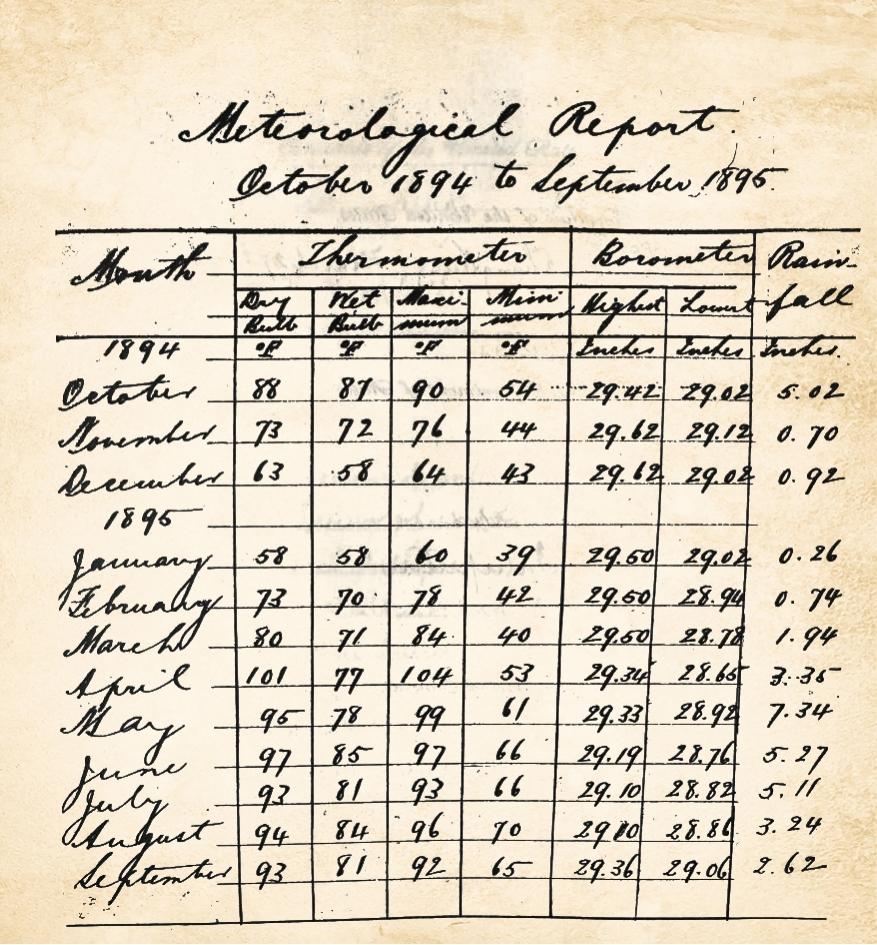 Meteorological Report.
October 1894 to September 1895.
Month Thermometer Barometer Rain-
fall
Dry Bulb Wet Bulb Maxi-mum Mini-mum Highest Lowest
1894 °F °F °F °F Inches Inches Inches.
October 88 87 90 54 29.42 29.02 5.02
November 73 72 76 44 29.62 29.12 0.70
December 63 58 64 43 29.62 29.02 0.92
1895
January 58 58 60 39 29.50 29.02 0.26
February 73 70 78 42 29.50 28.94 0.74
March 80 71 84 40 29.50 28.78 1.94
April 101 77 104 53 29.34 28.65 3.35
May 95 78 99 61 29.33 28.92 7.34
June 97 85 97 66 29.19 28.76 5.27
July 93 81 93 66 29.10 28.82 5.11
August 94 84 96 70 29.10 28.86 3.24
September 93 81 92 65 29.36 29.06 2.62